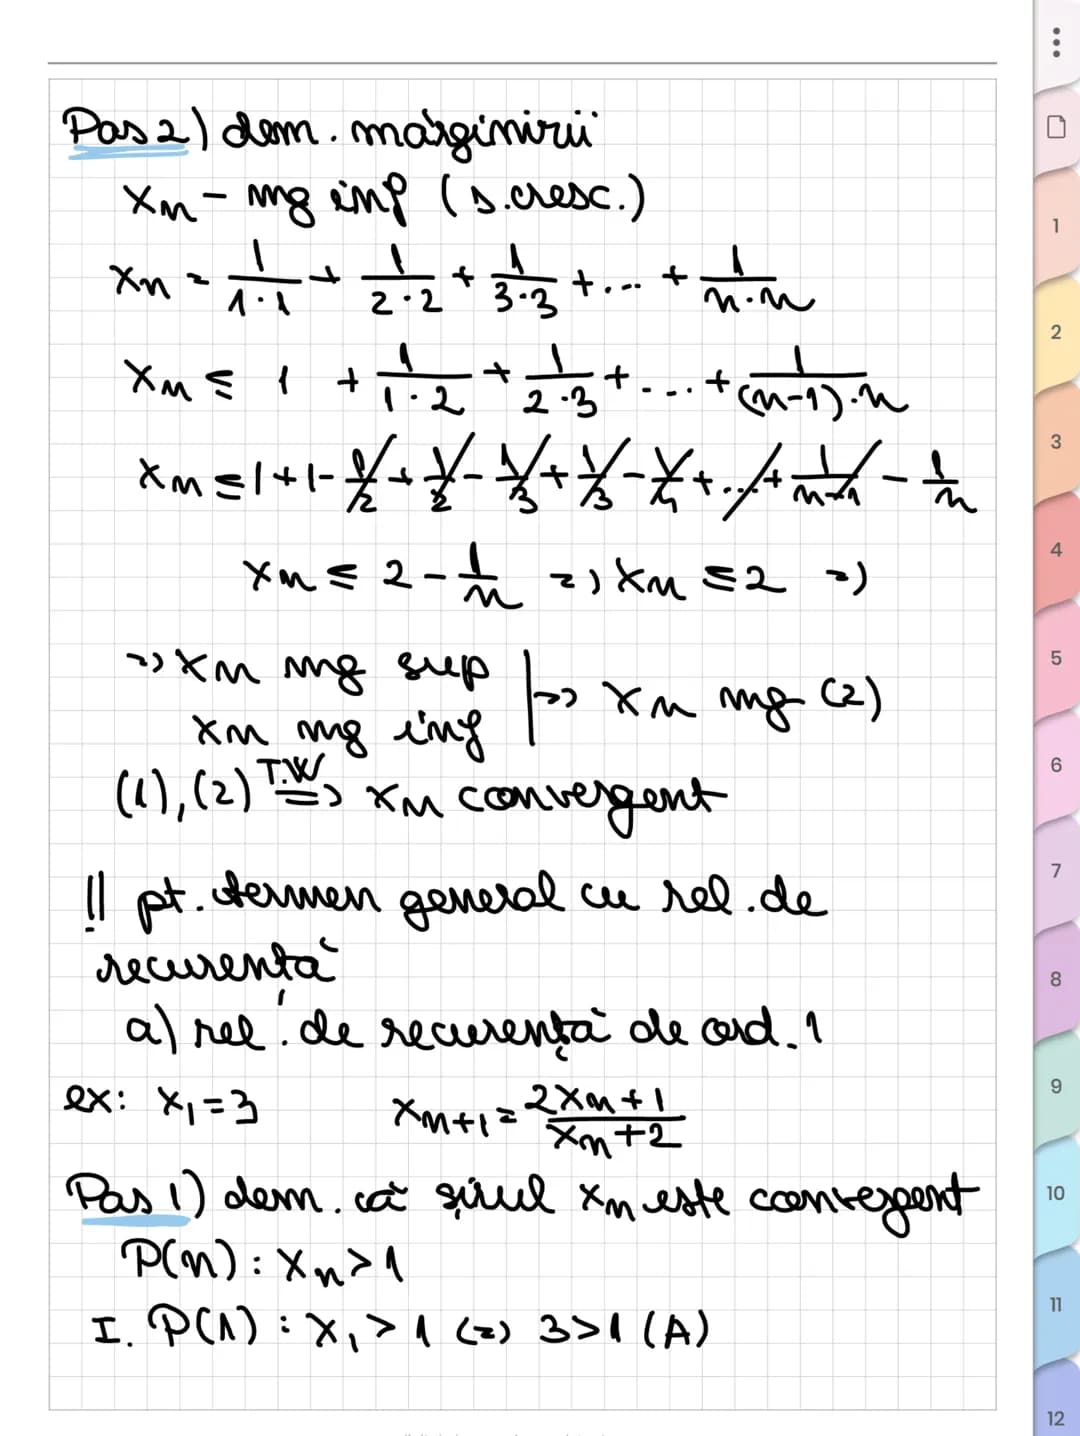 Pas 2) dem. mărginirii
xn - mg inf (s.cresc.)
xn = 1/(1·1) + 1/(2·2) + 1/(3·3) + ... + 1/(n·n)
xn ≤ 1 + 1/(1·2) + 1/(2·3) + ... + 1/((n-1)·n)
xn ≤ 1 + 1 - 1/2 + 1/2 - 1/3 + 1/3 - 1/4 + ... + 1/(n-1) - 1/n
xn ≤ 2 - 1/n => xn ≤ 2 =>
=> xn mg sup
xn mg inf | => xn mg (2)
(1), (2) T.W => xn convergent
!! pt. termen general cu rel. de
recurență
a) rel. de recurență de ord. 1
ex: x₁ = 3 xn+1 = (2xn + 1)/(xn + 2)
Pas 1) dem. că șirul xn este convergent
P(n) : xn > 1
I. P(1) : x₁ > 1 <=> 3 > 1 (A)
1
2
3
4
5
6
7
8
9
10
11
12